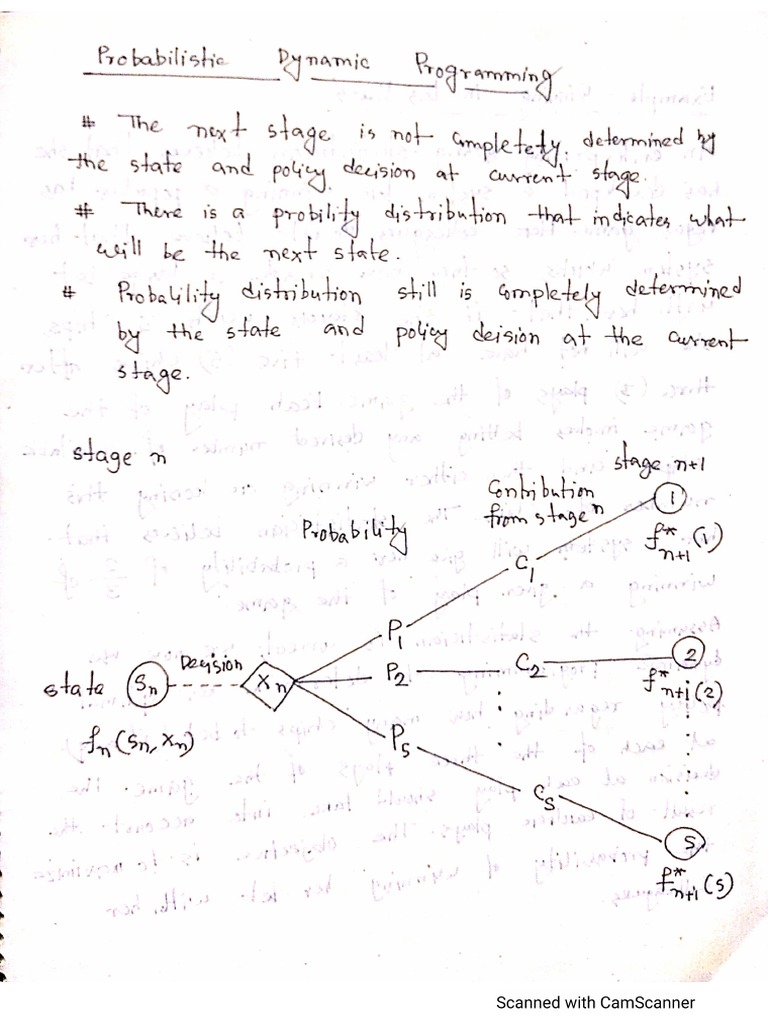 Probabilistic Dynamic Programming
# The next stage is not completety determined by
the state and policy decision at current stage.
# There is a probility distribution that indicates what
will be the next state.
# Probability distribution still is completely determined
by the state and policy deision at the current
stage.
stage n
stage n+1
Contribution
from stage n
Probability
1
f*n+1(1)
C1
P1
Decision
state Sn
Xn
P2
C2
2
f*n+1(2)
fn(Sn, Xn)
Ps
Cs
S
f*n+1(s)
Scanned with CamScanner